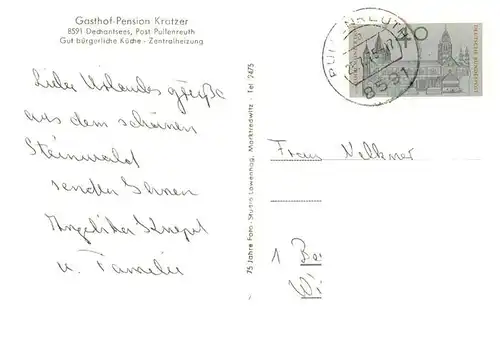 Gasthof-Pension Kratzer
8591 Dechantsees, Post Pullenreuth
Gut bürgerliche Küche - Zentralheizung
Liebe Urlaubsgrüße
aus dem schönen
Steinwald
senden Ihnen
Angelika
u. Familie
75 Jahre Foto-Studio Lowenhag, Marktredwitz - Tel. 2475
PULLENREUTH
8591
40
DEUTSCHE BUNDESPOST
Frau
1 Be
Wi